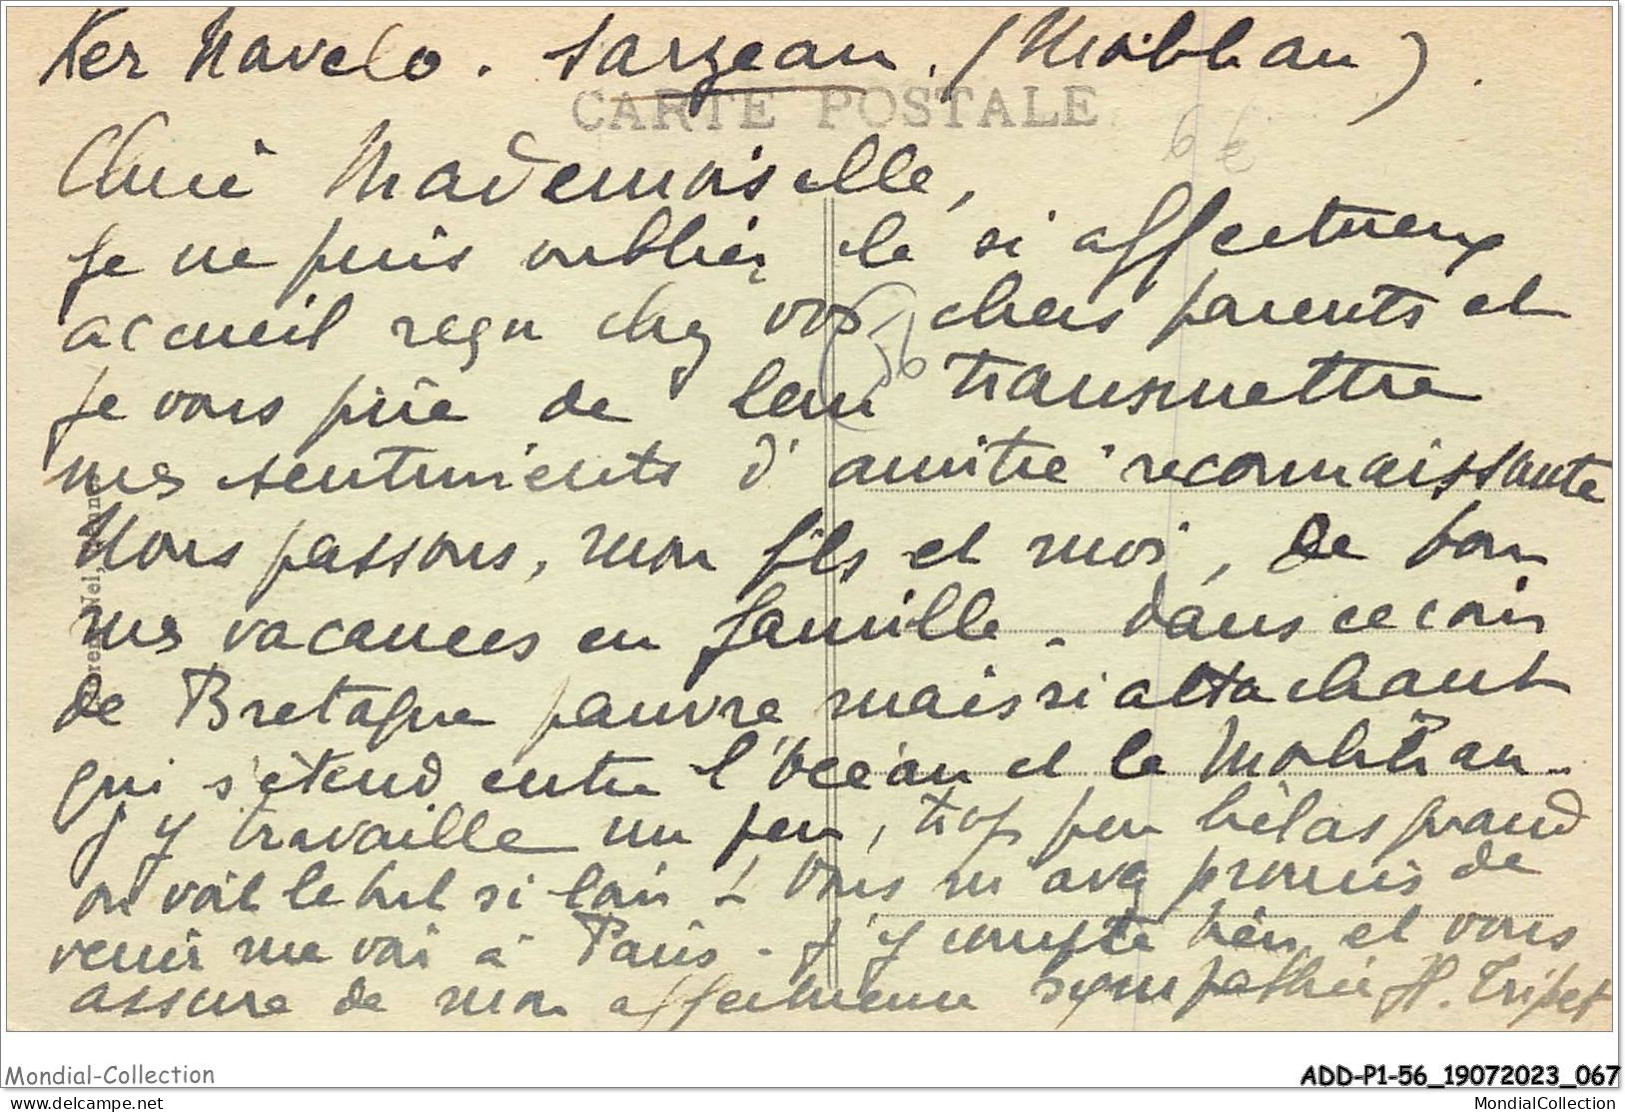 Ker Navelo. Sarzeau. (Morbihan).
CARTE POSTALE
6 €
Chère Mademoiselle,
Je ne puis oublier le si affectueux
accueil reçu chez vos chers parents et
56
je vous prie de leur transmettre
mes sentiments d'amitié reconnaissante
Nous passons, mon fils et moi, de bon
nes vacances en famille. dans ce coin
de Bretagne pauvre mais si attachant
qui s'étend entre l'Océan et le Morbihan.
J'y travaille un peu, trop peu hélas quand
on voit le but si loin! Vous m'avez promis de
venir me voir à Paris. J'y compte bien, et vous
assure de mon affectueuse sympathie H. Tripet
Mondial-Collection
ADD-P1-56_19072023_067
delcampe.net
MondialCollection